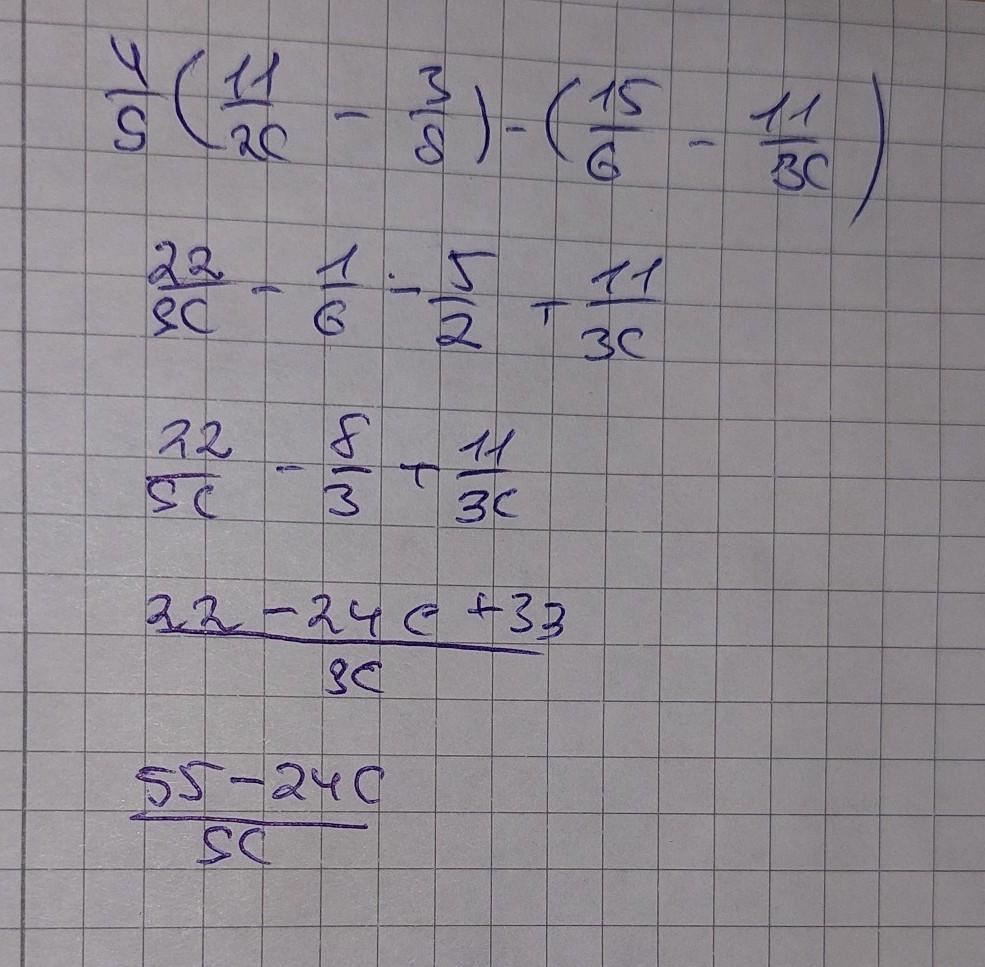 4/9 (11/2c - 3/8) - (15/6 - 11/3c)
22/9c - 1/6 - 5/2 + 11/3c
22/9c - 8/3 + 11/3c
22 - 24c + 33 / 9c
55 - 24c / 9c